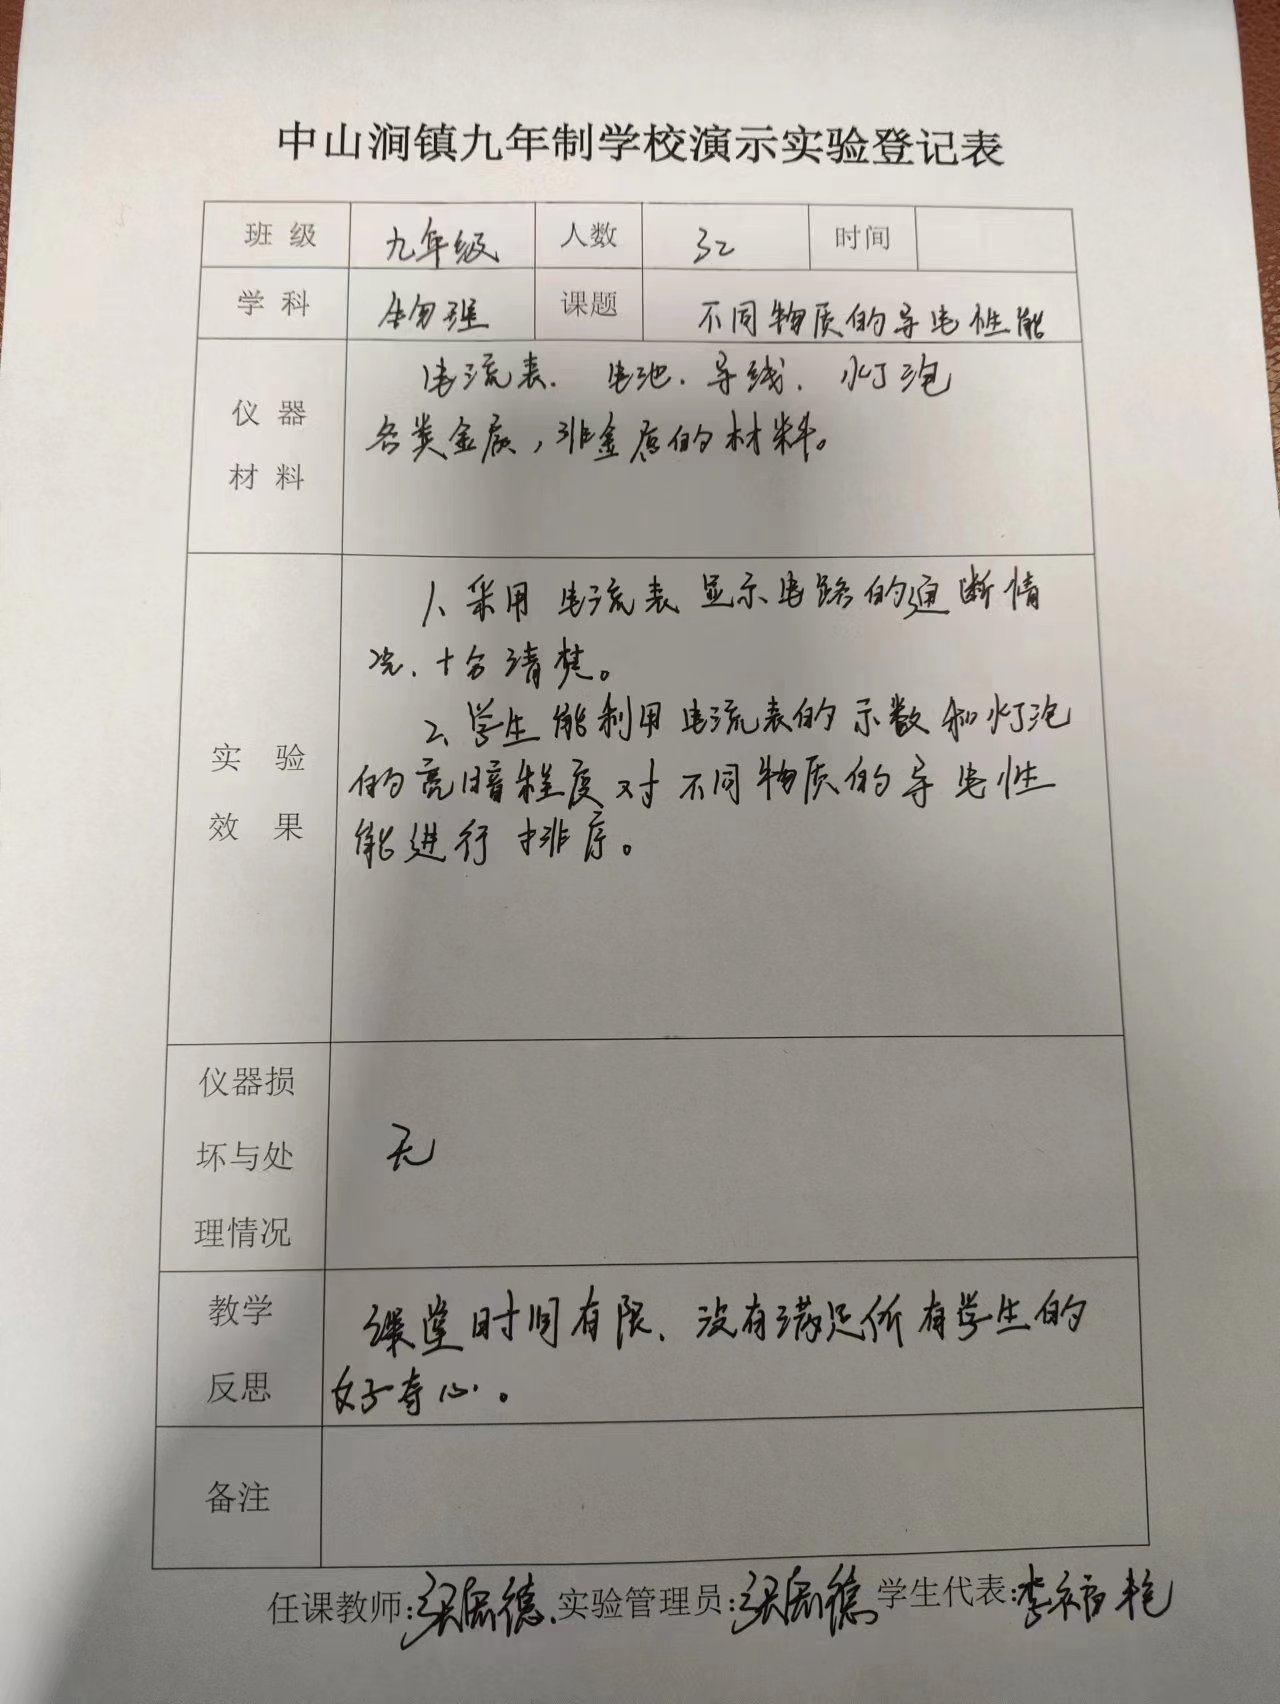 中山涧镇九年制学校演示实验登记表
班级 九年级 人数 32 时间
学科 物理 课题 不同物质的导电性能
仪器材料
电流表、电池、导线、灯泡
各类金属,非金属的材料。
实验效果
1、采用电流表显示电路的通断情
况、十分清楚。
2、学生能利用电流表的示数和灯泡
的亮暗程度对不同物质的导电性
能进行排序。
仪器损
坏与处
理情况
无
教学
反思
课堂时间有限、没有满足所有学生的
好奇心。
备注
任课教师: 实验管理员: 学生代表:李福艳